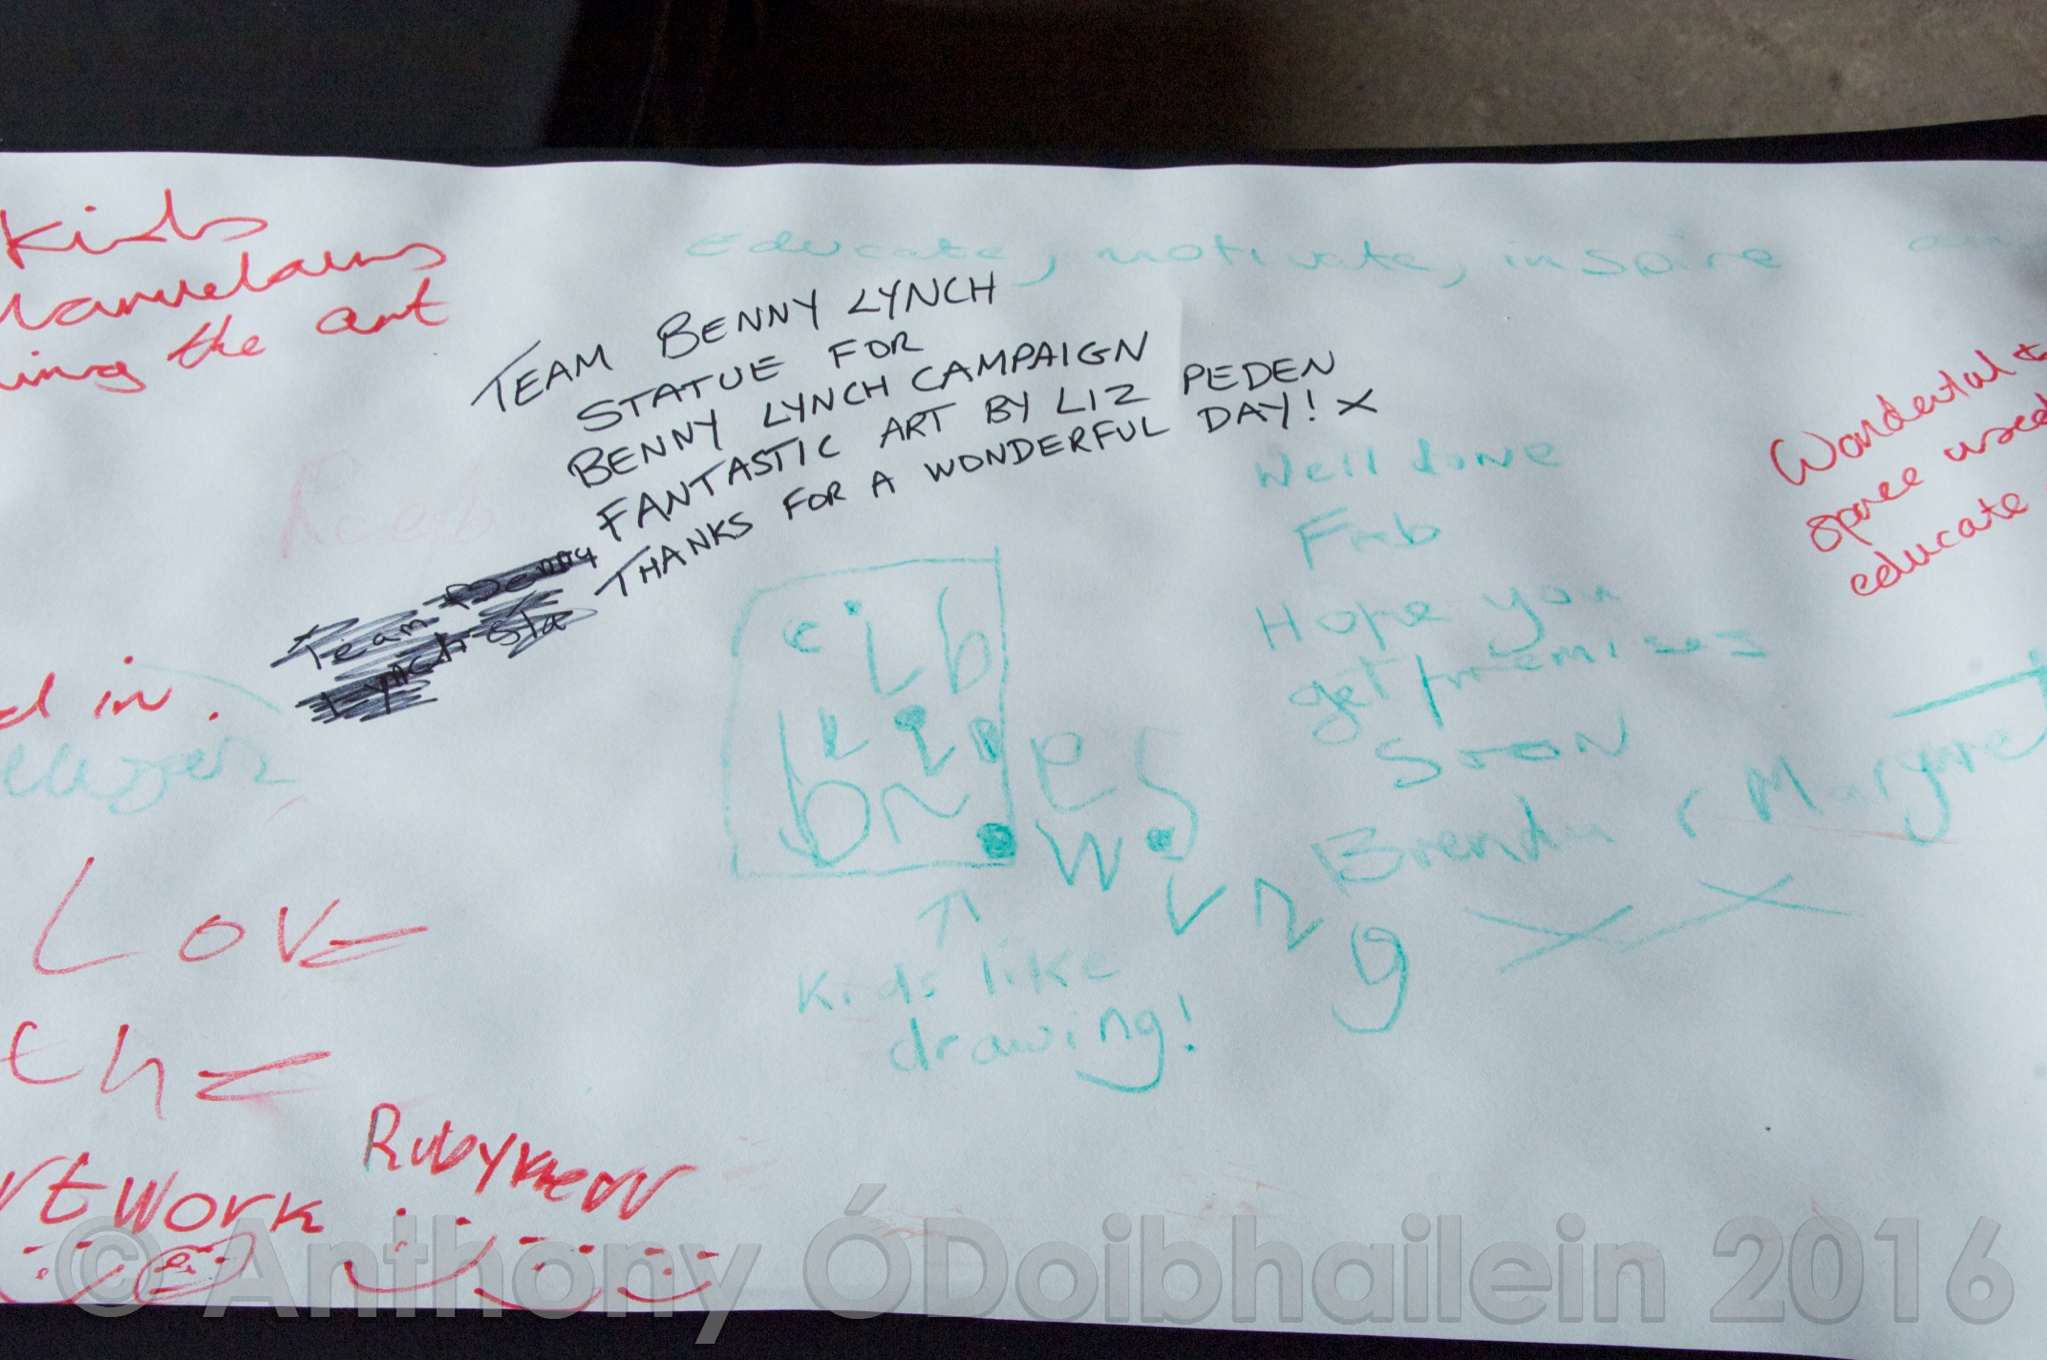 Kids
ing the art
Educate, motivate, inspire
TEAM BENNY LYNCH
STATUE FOR
BENNY LYNCH CAMPAIGN
FANTASTIC ART BY LIZ PEDEN
THANKS FOR A WONDERFUL DAY! X
Team Benny
Lynch Sta
Wonderful
space used
educate
Well done
Fab
Hope you
get premises
Soon
Brenda & Margaret
XX
d in.
Kids like
drawing!
Love
the
rtwork
Ruby Kerr
© Anthony ÓDoibhailein 2016